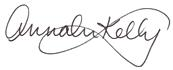 Annalu Kelly